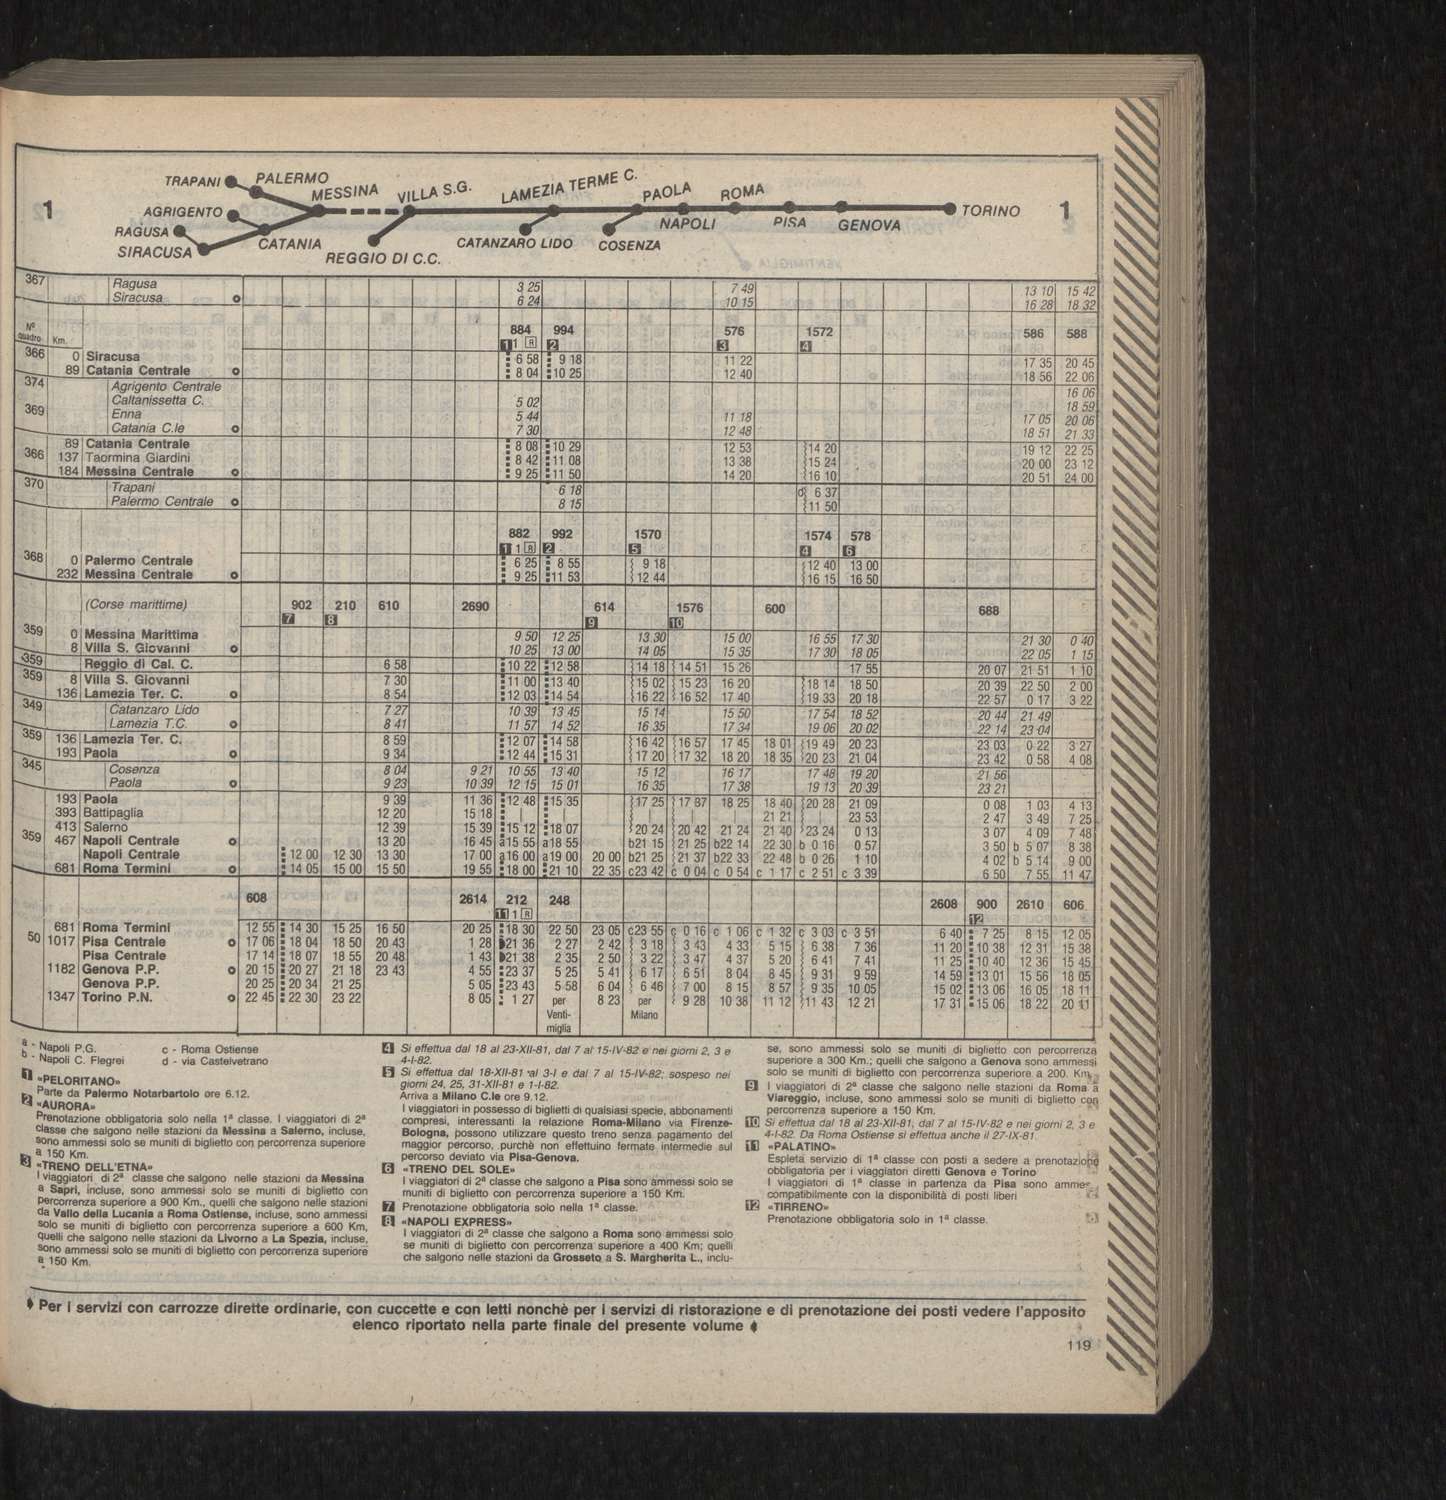 1
TRAPANI
PALERMO
MESSINA
VILLA S.G.
LAMEZIA TERME C.
PAOLA
ROMA
AGRIGENTO
RAGUSA
SIRACUSA
CATANIA
REGGIO DI C.C.
CATANZARO LIDO
COSENZA
NAPOLI
PISA
GENOVA
TORINO
1
367 Ragusa 3 25 7 49 13 10 15 42
Siracusa 6 24 10 15 16 28 18 32
Nº quadro Km. 884 994 576 1572 586 588
1 1 R 2 3 4
366 0 Siracusa 6 58 9 18 11 22 17 35 20 45
89 Catania Centrale 8 04 10 25 12 40 18 56 22 06
374 Agrigento Centrale 16 06
Caltanissetta C. 5 02 18 59
369 Enna 5 44 11 18 17 05 20 06
Catania C.le 7 30 12 48 18 51 21 33
89 Catania Centrale 8 08 10 29 12 53 14 20 19 12 22 25
366 137 Taormina Giardini 8 42 11 08 13 38 15 24 20 00 23 12
184 Messina Centrale 9 25 11 50 14 20 16 10 20 51 24 00
370 Trapani 6 18 d 6 37
Palermo Centrale 8 15 11 50
882 992 1570 1574 578
1 1 R 2 5 4 6
368 0 Palermo Centrale 6 25 8 55 9 18 12 40 13 00
232 Messina Centrale 9 25 11 53 12 44 16 15 16 50
(Corse marittime) 902 210 610 2690 614 1576 600 688
7 8 9 10
359 0 Messina Marittima 9 50 12 25 13 30 15 00 16 55 17 30 21 30 0 40
8 Villa S. Giovanni 10 25 13 00 14 05 15 35 17 30 18 05 22 05 1 15
359 Reggio di Cal. C. 6 58 10 22 12 58 14 18 14 51 15 26 17 55 20 07 21 51 1 10
359 8 Villa S. Giovanni 7 30 11 00 13 40 15 02 15 23 16 20 18 14 18 50 20 39 22 50 2 00
136 Lamezia Ter. C. 8 54 12 03 14 54 16 22 16 52 17 40 19 33 20 18 22 57 0 17 3 22
349 Catanzaro Lido 7 27 10 39 13 45 15 14 15 50 17 54 18 52 20 44 21 49
Lamezia T.C. 8 41 11 57 14 52 16 35 17 34 19 06 20 02 22 14 23 04
359 136 Lamezia Ter. C. 8 59 12 07 14 58 16 42 16 57 17 45 18 01 19 49 20 23 23 03 0 22 3 27
193 Paola 9 34 12 44 15 31 17 20 17 32 18 20 18 35 20 23 21 04 23 42 0 58 4 08
345 Cosenza 8 04 9 21 10 55 13 40 15 12 16 17 17 48 19 20 21 56
Paola 9 23 10 39 12 15 15 01 16 35 17 38 19 13 20 39 23 21
193 Paola 9 39 11 36 12 48 15 35 17 25 17 37 18 25 18 40 20 28 21 09 0 08 1 03 4 13
393 Battipaglia 12 20 15 18 | | | | | 21 21 | 23 53 2 47 3 49 7 25
413 Salerno 12 39 15 39 15 12 18 07 20 24 20 42 21 24 21 40 23 24 0 13 3 07 4 09 7 48
359 467 Napoli Centrale 13 20 16 45 a15 55 a18 55 b21 15 21 25 b22 14 22 30 b 0 16 0 57 3 50 b 5 07 8 38
Napoli Centrale 12 00 12 30 13 30 17 00 a16 00 a19 00 20 00 b21 25 21 37 b22 33 22 48 b 0 26 1 10 4 02 b 5 14 9 00
681 Roma Termini 14 05 15 00 15 50 19 55 18 00 21 10 22 35 c23 42 c 0 04 c 0 54 c 1 17 c 2 51 c 3 39 6 50 7 55 11 47
608 2614 212 248 2608 900 2610 606
11 1 R 12
681 Roma Termini 12 55 14 30 15 25 16 50 20 25 18 30 22 50 23 05 c23 55 c 0 16 c 1 06 c 1 32 c 3 03 c 3 51 6 40 7 25 8 15 12 05
50 1017 Pisa Centrale 17 06 18 04 18 50 20 43 1 28 21 36 2 27 2 42 3 18 3 43 4 33 5 15 6 38 7 36 11 20 10 38 12 31 15 38
Pisa Centrale 17 14 18 07 18 55 20 48 1 43 21 38 2 35 2 50 3 22 3 47 4 37 5 20 6 41 7 41 11 25 10 40 12 36 15 45
1182 Genova P.P. 20 15 20 27 21 18 23 43 4 55 23 37 5 25 5 41 6 17 6 51 8 04 8 45 9 31 9 59 14 59 13 01 15 56 18 05
Genova P.P. 20 25 20 34 21 25 5 05 23 43 5 58 6 04 6 46 7 00 8 15 8 57 9 35 10 05 15 02 13 06 16 05 18 11
1347 Torino P.N. 22 45 22 30 23 22 8 05 1 27 per 8 23 per 9 28 10 38 11 12 11 43 12 21 17 31 15 06 18 22 20 11
Venti- Milano
miglia
a - Napoli P.G. c - Roma Ostiense
b - Napoli C. Flegrei d - via Castelvetrano
1 «PELORITANO»
Parte da Palermo Notarbartolo ore 6.12.
2 «AURORA»
Prenotazione obbligatoria solo nella 1ª classe. I viaggiatori di 2ª
classe che salgono nelle stazioni da Messina a Salerno, incluse,
sono ammessi solo se muniti di biglietto con percorrenza superiore
a 150 Km.
3 «TRENO DELL'ETNA»
I viaggiatori di 2ª classe che salgono nelle stazioni da Messina
a Sapri, incluse, sono ammessi solo se muniti di biglietto con
percorrenza superiore a 900 Km., quelli che salgono nelle stazioni
da Vallo della Lucania a Roma Ostiense, incluse, sono ammessi
solo se muniti di biglietto con percorrenza superiore a 600 Km,
quelli che salgono nelle stazioni da Livorno a La Spezia, incluse,
sono ammessi solo se muniti di biglietto con percorrenza superiore
a 150 Km.
4 Si effettua dal 18 al 23-XII-81, dal 7 al 15-IV-82 e nei giorni 2, 3 e
4-I-82.
5 Si effettua dal 18-XII-81 al 3-I e dal 7 al 15-IV-82; sospeso nei
giorni 24, 25, 31-XII-81 e 1-I-82.
Arriva a Milano C.le ore 9.12.
I viaggiatori in possesso di biglietti di qualsiasi specie, abbonamenti
compresi, interessanti la relazione Roma-Milano via Firenze-
Bologna, possono utilizzare questo treno senza pagamento del
maggior percorso, purchè non effettuino fermate intermedie sul
percorso deviato via Pisa-Genova.
6 «TRENO DEL SOLE»
I viaggiatori di 2ª classe che salgono a Pisa sono ammessi solo se
muniti di biglietto con percorrenza superiore a 150 Km.
7 Prenotazione obbligatoria solo nella 1ª classe.
8 «NAPOLI EXPRESS»
I viaggiatori di 2ª classe che salgono a Roma sono ammessi solo
se muniti di biglietto con percorrenza superiore a 400 Km; quelli
che salgono nelle stazioni da Grosseto a S. Margherita L., inclu-
se, sono ammessi solo se muniti di biglietto con percorrenza
superiore a 300 Km.; quelli che salgono a Genova sono ammessi
solo se muniti di biglietto con percorrenza superiore a 200. Km.
9 I viaggiatori di 2ª classe che salgono nelle stazioni da Roma a
Viareggio, incluse, sono ammessi solo se muniti di biglietto con
percorrenza superiore a 150 Km.
10 Si effettua dal 18 al 23-XII-81, dal 7 al 15-IV-82 e nei giorni 2, 3 e
4-I-82. Da Roma Ostiense si effettua anche il 27-IX-81.
11 «PALATINO»
Espleta servizio di 1ª classe con posti a sedere a prenotazione
obbligatoria per i viaggiatori diretti Genova e Torino
I viaggiatori di 1ª classe in partenza da Pisa sono ammessi
compatibilmente con la disponibilità di posti liberi
12 «TIRRENO»
Prenotazione obbligatoria solo in 1ª classe.
Per i servizi con carrozze dirette ordinarie, con cuccette e con letti nonchè per i servizi di ristorazione e di prenotazione dei posti vedere l'apposito
elenco riportato nella parte finale del presente volume
119